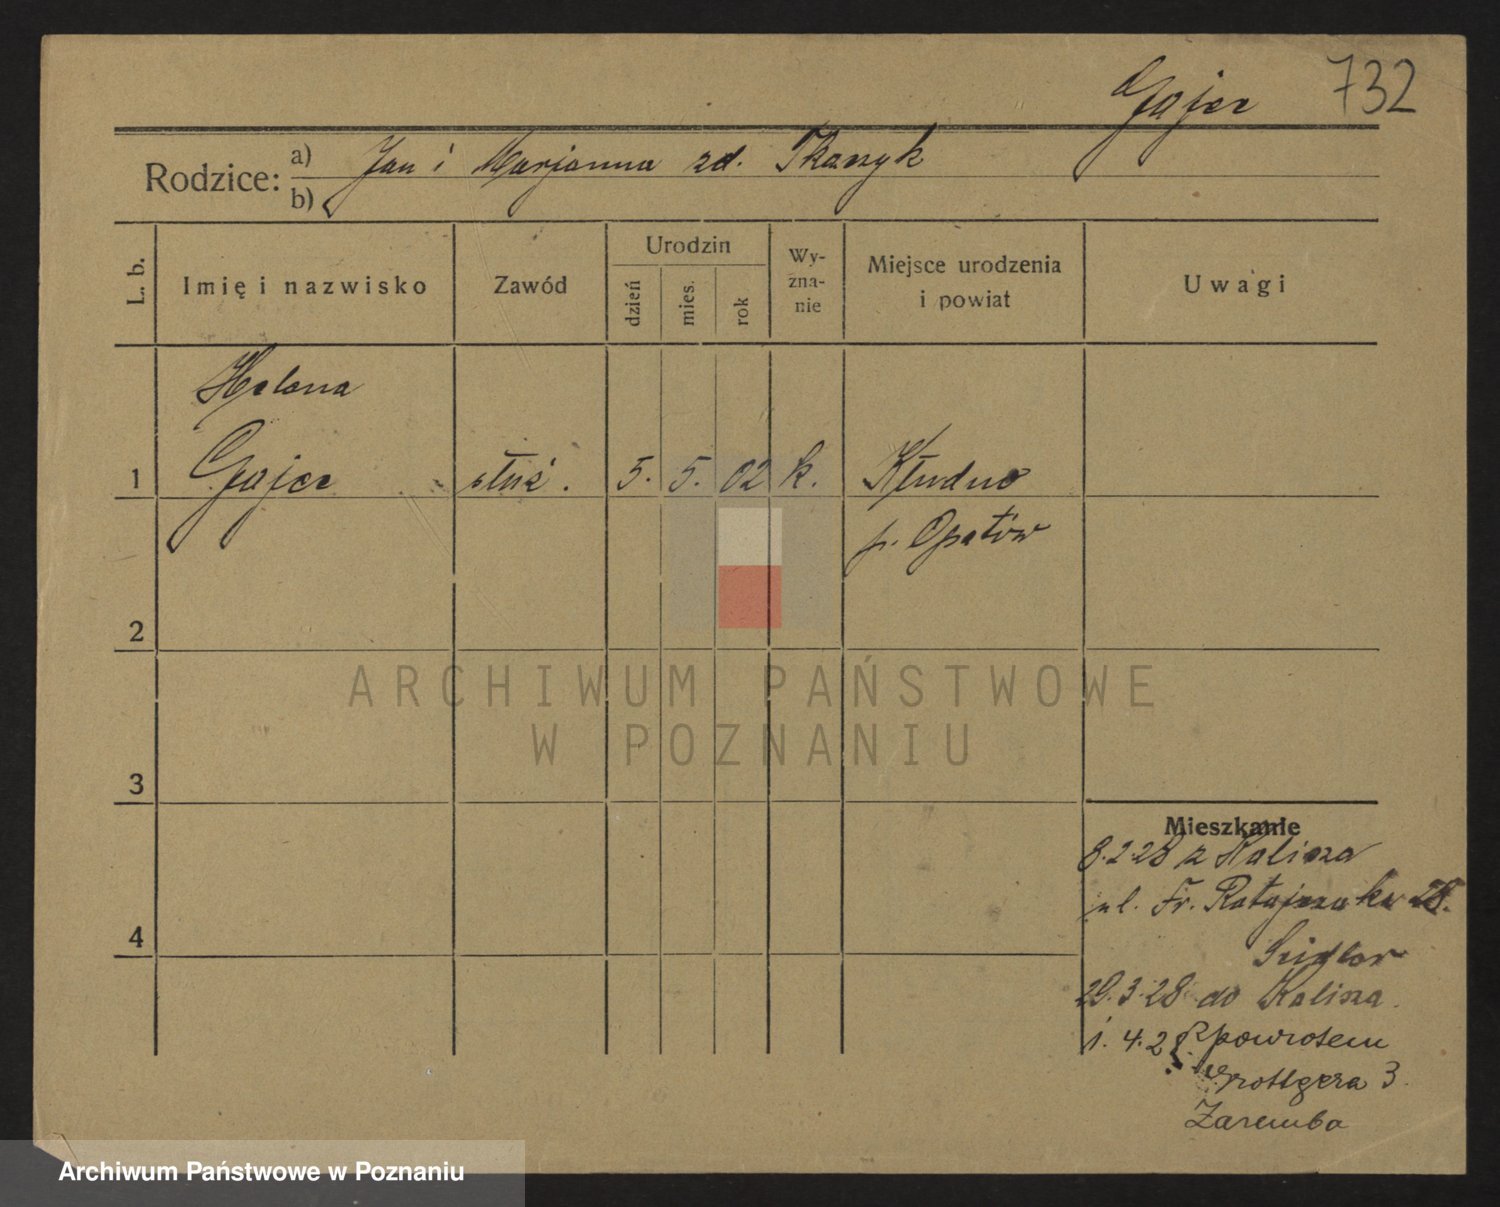 732
Gajer
Rodzice: a) Jan i Marjanna zd. Tkaszyk
b)
L. b.
Imię i nazwisko
Zawód
Urodzin
dzień
mies.
rok
Wy-
zna-
nie
Miejsce urodzenia
i powiat
Uwagi
Helena
1 Gajer służ. 5. 5. 02 k. Kłudno
p. Opatów
2
3
4
Mieszkanie
8.2.28 z Kalisza
ul. Fr. Ratajczaka 28.
29.3.28 do Kalisza.
1. 4. 28 z powrotem
Grottgera 3.
Zaremba
ARCHIWUM PAŃSTWOWE
W POZNANIU
Archiwum Państwowe w Poznaniu